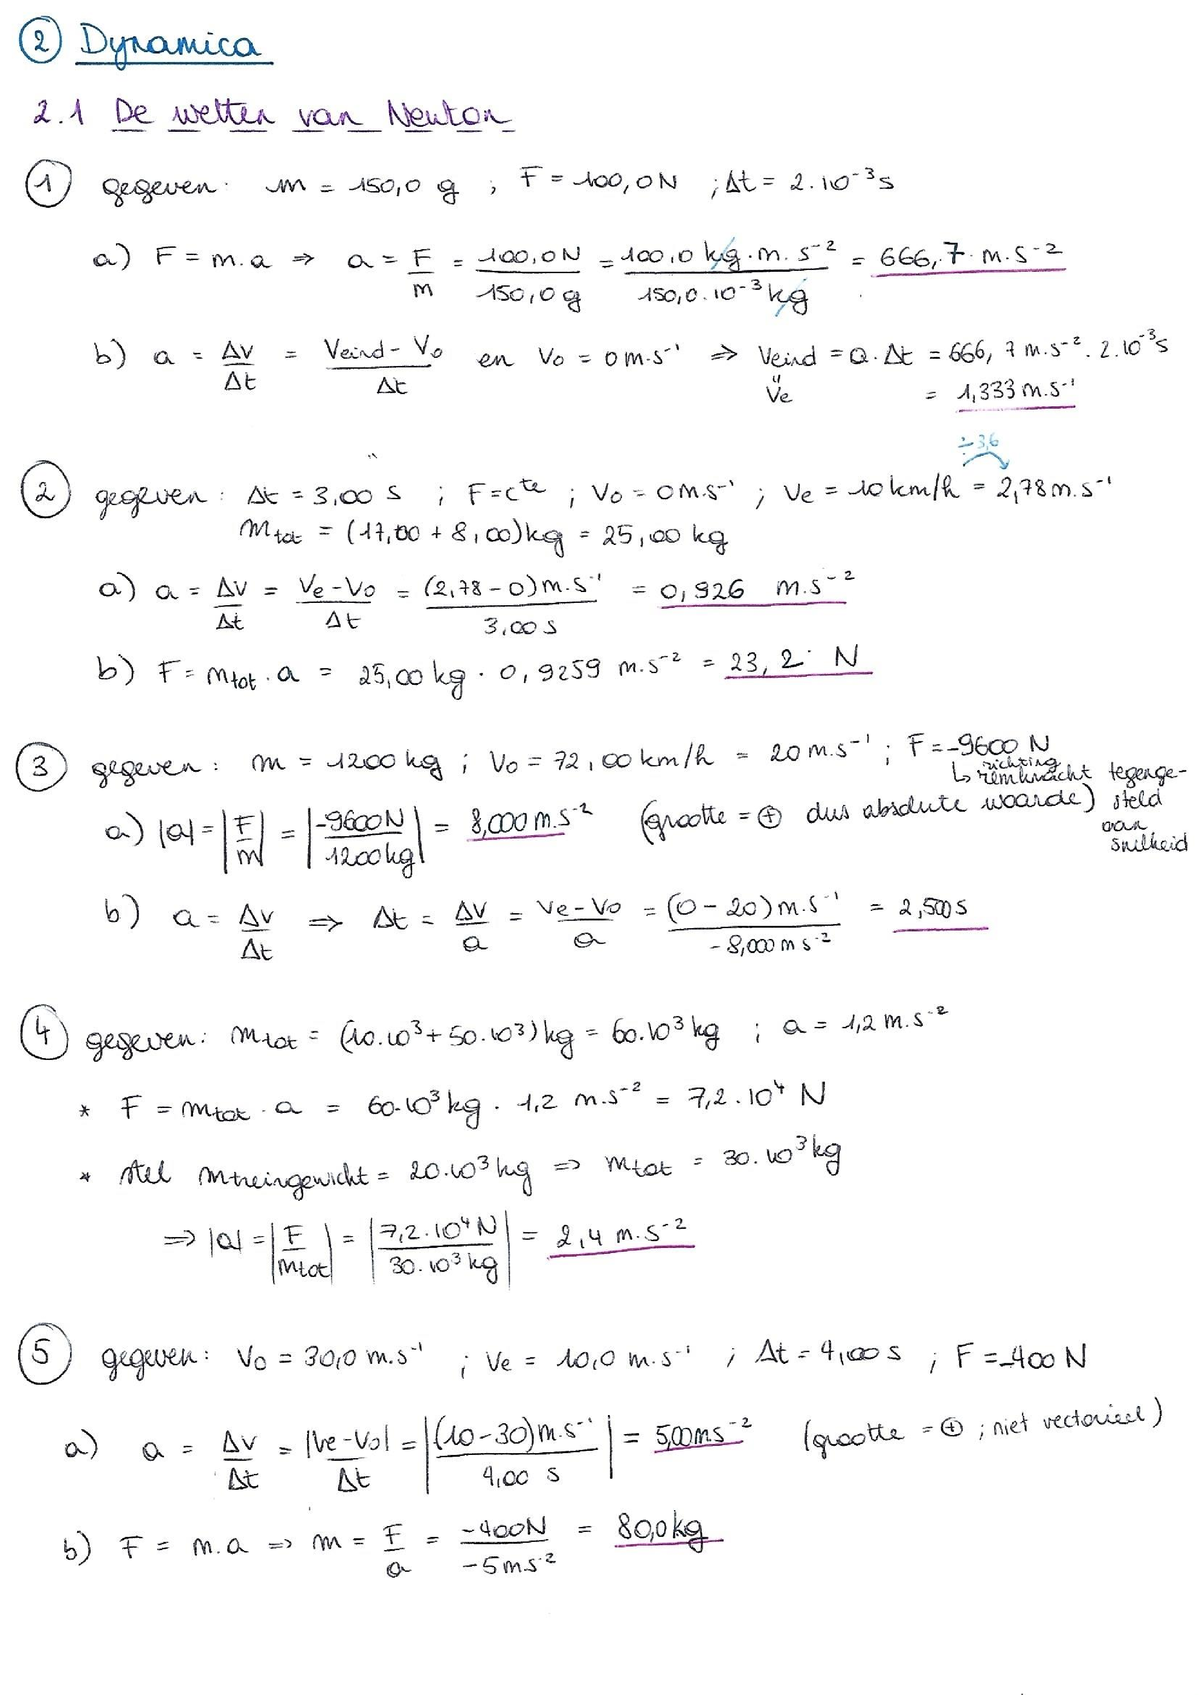 ② Dynamica
2.1 De wetten van Newton
① gegeven: m = 150,0 g ; F = 100,0 N ; Δt = 2.10⁻³s
a) F = m.a ⇒ a = F/m = 100,0N/150,0g = 100,0 kg.m.s⁻²/150,0.10⁻³kg = 666,7 m.s⁻²
b) a = Δv/Δt = Veind - V₀/Δt en V₀ = 0 m.s⁻¹ ⇒ Veind = a.Δt = 666,7 m.s⁻².2.10⁻³s
" Ve = 1,333 m.s⁻¹
÷3,6
② gegeven: Δt = 3,00 s ; F = cᵗᵉ ; V₀ = 0 m.s⁻¹ ; Ve = 10 km/h = 2,78 m.s⁻¹
mtot = (17,00 + 8,00)kg = 25,00 kg
a) a = Δv/Δt = Ve - V₀/Δt = (2,78 - 0)m.s⁻¹/3,00 s = 0,926 m.s⁻²
b) F = mtot.a = 25,00 kg . 0,9259 m.s⁻² = 23,2 N
③ gegeven: m = 1200 kg ; V₀ = 72,00 km/h = 20 m.s⁻¹ ; F = -9600 N
↳ richting remkracht tegengesteld aan snelheid
a) |a| = |F/m| = |-9600N/1200kg| = 8,000 m.s⁻² (grootte = ⊕ dus absolute waarde)
b) a = Δv/Δt ⇒ Δt = Δv/a = Ve - V₀/a = (0 - 20)m.s⁻¹/-8,000 m s⁻² = 2,500 s
④ gegeven: mtot = (10.10³ + 50.10³)kg = 60.10³ kg ; a = 1,2 m.s⁻²
* F = mtot . a = 60.10³ kg . 1,2 m.s⁻² = 7,2.10⁴ N
* stel mtreingewicht = 20.10³ kg ⇒ mtot = 30.10³ kg
⇒ |a| = |F/mtot| = |7,2.10⁴ N/30.10³ kg| = 2,4 m.s⁻²
⑤ gegeven: V₀ = 30,0 m.s⁻¹ ; Ve = 10,0 m.s⁻¹ ; Δt = 4,00 s ; F = -400 N
a) a = Δv/Δt = |Ve - V₀|/Δt = |(10 - 30)m.s⁻¹/4,00 s| = 5,00 m s⁻² (grootte = ⊕ ; niet vectorieel)
b) F = m.a ⇒ m = F/a = -400N/-5 m s⁻² = 80,0 kg